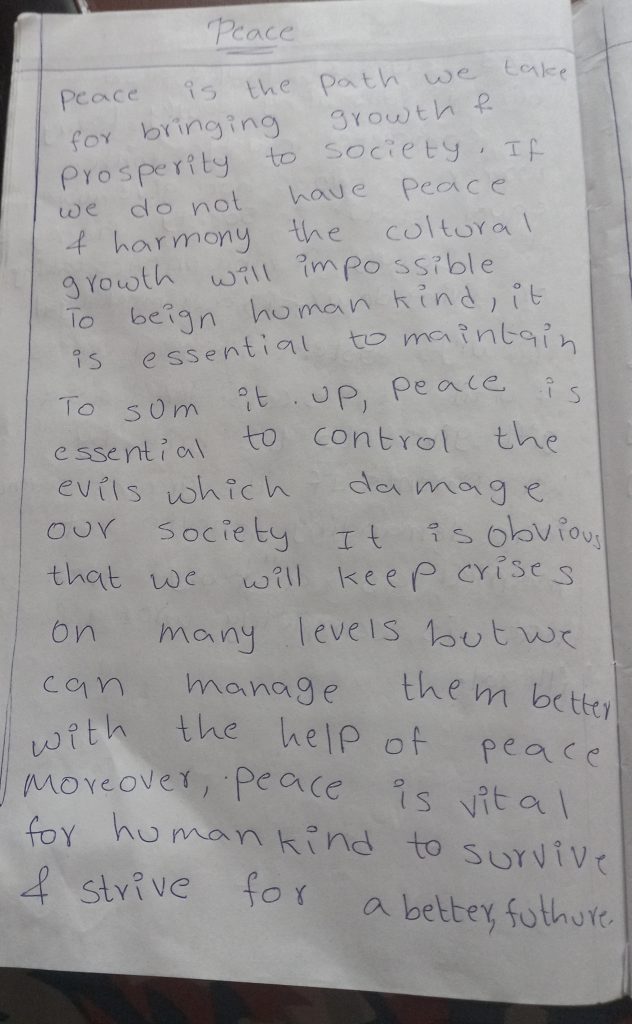 Peace
Peace is the path we take
for bringing growth &
prosperity to society. If
we do not have peace
& harmony the cultural
growth will impossible
To beign human kind, it
is essential to maintain
To sum it. up, peace is
essential to control the
evils which damage
our society It is obvious
that we will keep crises
on many levels but we
can manage them better
with the help of peace
Moreover, peace is vital
for human kind to survive
& strive for a better, futhure.